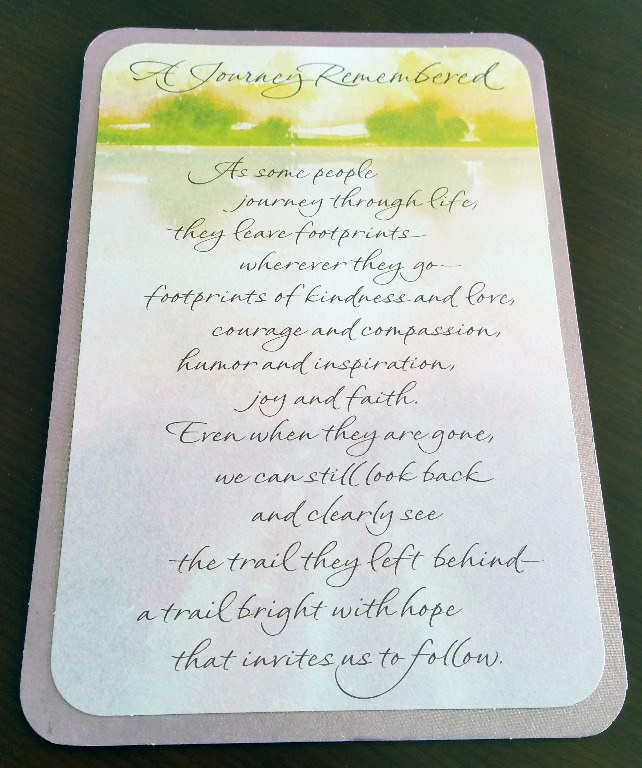 A Journey Remembered
As some people
journey through life,
they leave footprints
wherever they go—
footprints of kindness and love,
courage and compassion,
humor and inspiration,
joy and faith.
Even when they are gone,
we can still look back
and clearly see
the trail they left behind—
a trail bright with hope
that invites us to follow.